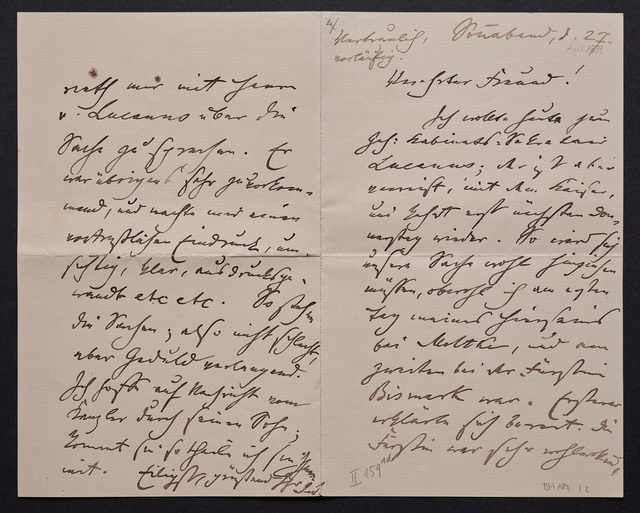 Vertraulich,
vorläufig.
Sonnabend, d. 27.
April 1889
Verehrter Freund!
Ich wollte heute zum
Geh: Kabinets-Sekretair
Lucanus; der ist aber
verreist, mit dem Kaiser,
und kehrt erst nächsten Don-
nerstag wieder. So wird sich
unsere Sache wohl hinziehen
müssen, obwohl ich am ersten
Tag meines Hierseins
bei Moltke, und am
zweiten bei der Fürstin
Bismark war. Ersterer
erklärte sich bereit. Die
Fürstin war sehr wohlwollend,
rieth mir mit Herrn
v. Lucanus über die
Sache zu sprechen. Er
war übrigens sehr zuvorkom-
mend, und machte mir einen
vortrefflichen Eindruck, um-
sichtig, klar, ausdrucksge-
wandt etc etc. So stehen
die Sachen; also nicht schlecht,
aber Geduld verlangend.
Ich hoffe auf Nachricht vom
Kanzler durch seinen Sohn;
kommt sie so theile ich sie Ihnen
mit. Eiligst, grüßend Ihr
II 159